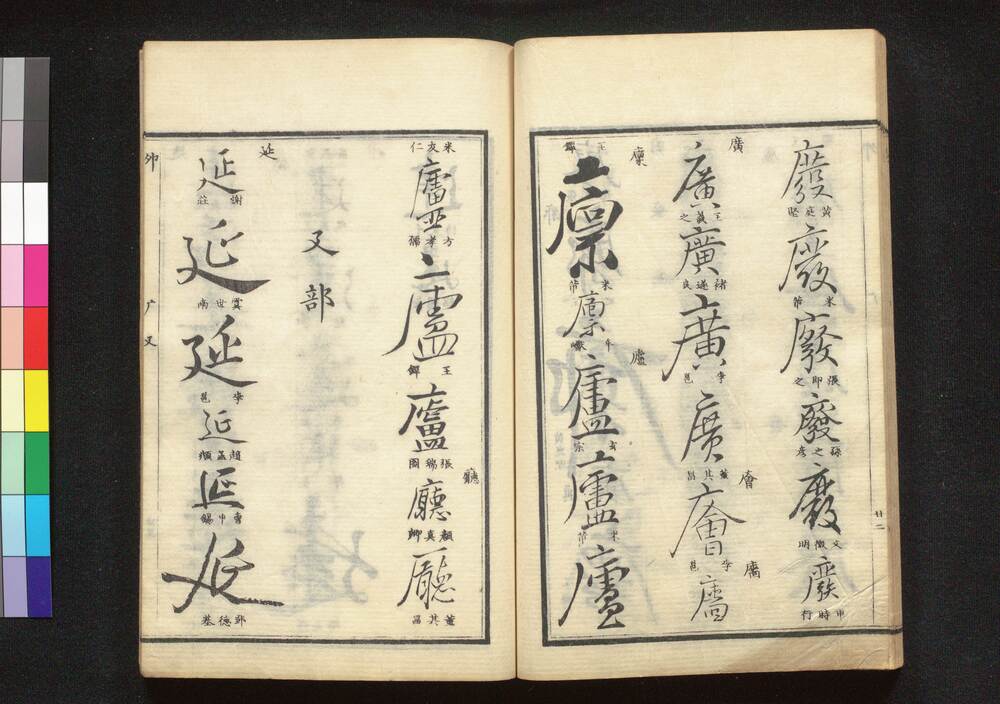 廢 黃庭堅
廢 米芾
廢 張即之
廢 孫過庭
廢 文徵明
廢 申時行
廿二
廣
廣 王羲之
廣 褚遂良
廣 李邕
廣 董其昌
廥
廥 李邕
廧
廧
王鐸
廩
廩 米芾
廩
廬
廬 玄宗
廬 米芾
廬
米友仁
廬 方孝孺
廬 王鐸
廬 張瑞圖
廳
廳 顏真卿
廳 董其昌
廴部
延
延 謝莊
延 虞世南
延 李邕
延 趙孟頫
延
延 鄧德基
卯
广廴